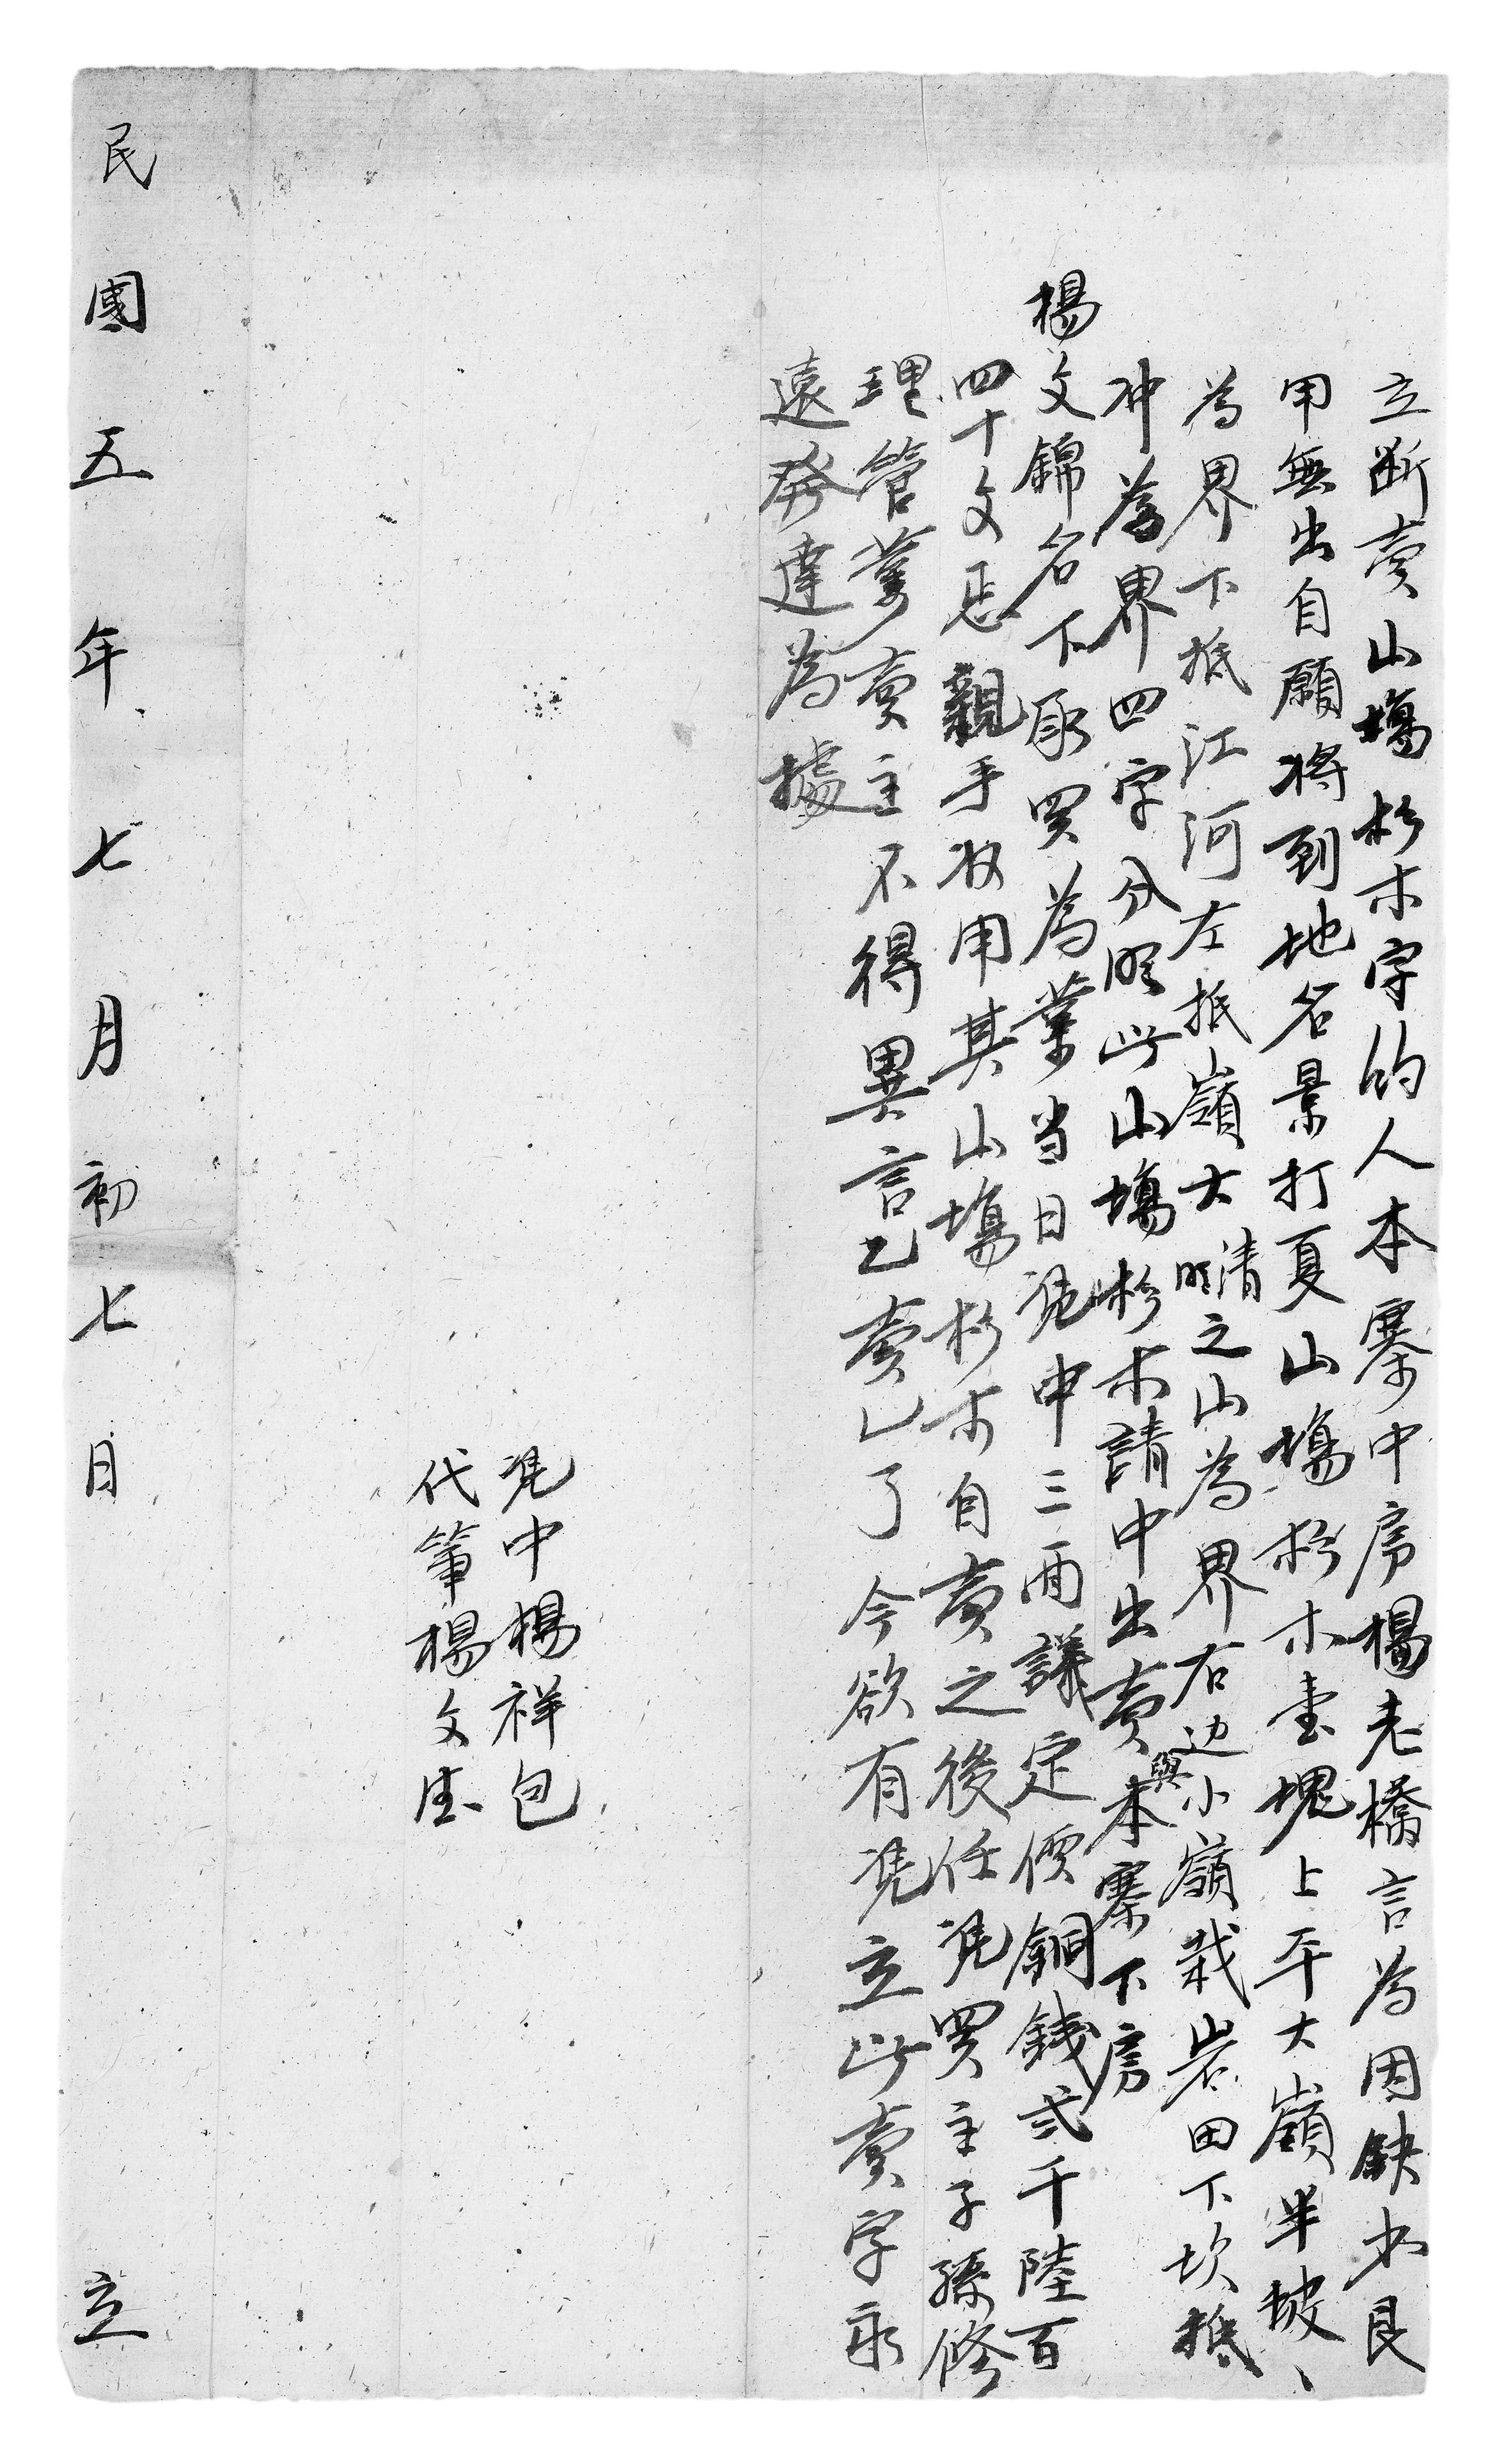 立断賣山塲杉木字的人本寨中房楊老橋言為因缺少艮
用無出自願将到地名景打夏山塲杉木壹塊上平大嶺半坡、
為界下抵江河左抵嶺大清明之山為界右边小嶺栽岩田下坎抵
冲為界四字分明此山塲杉木請中出賣與本寨下房
楊文錦名下承買為業当日凴中三面議定價銅錢弍千陸百
四十文恁親手收用其山塲杉木自賣之後任凴買主子孫修
理管業賣主不得異言乙賣乚了今欲有凴立此賣字永
遠發達為據
凴中楊祥包
代筆楊文
民國五年七月初七日立